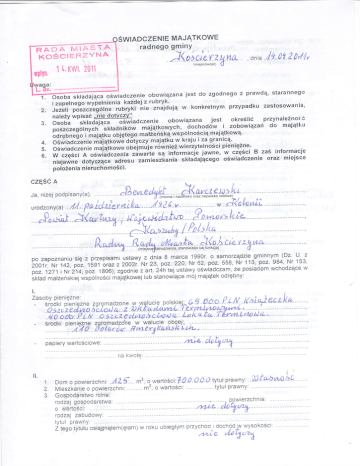 OŚWIADCZENIE MAJĄTKOWE
radnego gminy
RADA MIASTA
KOŚCIERZYNA
wpłyn. 14. KWI. 2011
Kościerzyna dnia 14.04.2011r.
(miejscowość)
Uwaga:
1. Osoba składająca oświadczenie obowiązana jest do zgodnego z prawdą, starannego
i zupełnego wypełnienia każdej z rubryk.
2. Jeżeli poszczególne rubryki nie znajdują w konkretnym przypadku zastosowania,
należy wpisać „nie dotyczy”.
3. Osoba składająca oświadczenie obowiązana jest określić przynależność
poszczególnych składników majątkowych, dochodów i zobowiązań do majątku
odrębnego i majątku objętego małżeńską wspólnością majątkową.
4. Oświadczenie majątkowe dotyczy majątku w kraju i za granicą.
5. Oświadczenie majątkowe obejmuje również wierzytelności pieniężne.
6. W części A oświadczenia zawarte są informacje jawne, w części B zaś informacje
niejawne dotyczące adresu zamieszkania składającego oświadczenie oraz miejsca
położenia nieruchomości.
CZĘŚĆ A
Ja, niżej podpisany(a), Benedykt Karczewski
urodzony(a) 11. października 1926 r w Kolonii
Powiat Kartuzy, Województwo Pomorskie
Kaszuby / Polska
Radny Rady Miasta Kościerzyna
po zapoznaniu się z przepisami ustawy z dnia 8 marca 1990r. o samorządzie gminnym (Dz. U. z
2001r. Nr 142, poz. 1591 oraz z 2002r. Nr 23, poz. 220, Nr 62, poz. 558, Nr 113, poz. 984, Nr 153,
poz. 1271 i Nr 214, poz. 1806), zgodnie z art. 24h tej ustawy oświadczam, że posiadam wchodzące w
skład małżeńskiej wspólności majątkowej lub stanowiące mój majątek odrębny:
I.
Zasoby pieniężne:
- środki pieniężne zgromadzone w walucie polskiej: 69 000 PLN Książeczka
Oszczędnościowa z Wkładami Terminowymi.
40 000 PLN Oszczędnościowa Lokata Terminowa.
- środki pieniężne zgromadzone w walucie obcej:
110 Dolarów Amerykańskich.
- papiery wartościowe: nie dotyczy
na kwotę:
II.
1. Dom o powierzchni: 125 m², o wartości: 700.000 tytuł prawny: Własność
2. Mieszkanie o powierzchni: m², o wartości: tytuł prawny:
3. Gospodarstwo rolne:
rodzaj gospodarstwa: powierzchnia:
o wartości: nie dotyczy
rodzaj zabudowy:
tytuł prawny: nie dotyczy
Z tego tytułu osiągnąłem(ęłam) w roku ubiegłym przychód i dochód w wysokości:
nie dotyczy